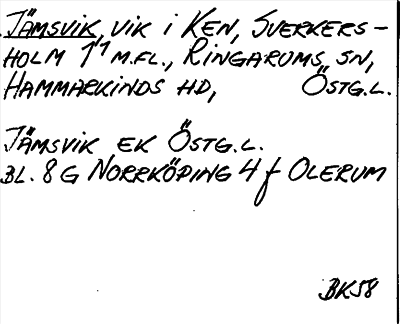 JÄMSVIK, VIK I KEN, SVERKERS-
HOLM 1¹⁷ M.FL., RINGARUMS SN,
HAMMARKINDS HD, ÖSTG.L.
JÄMSVIK EK ÖSTG.L.
BL. 8G NORRKÖPING 4f OLERUM
BK58